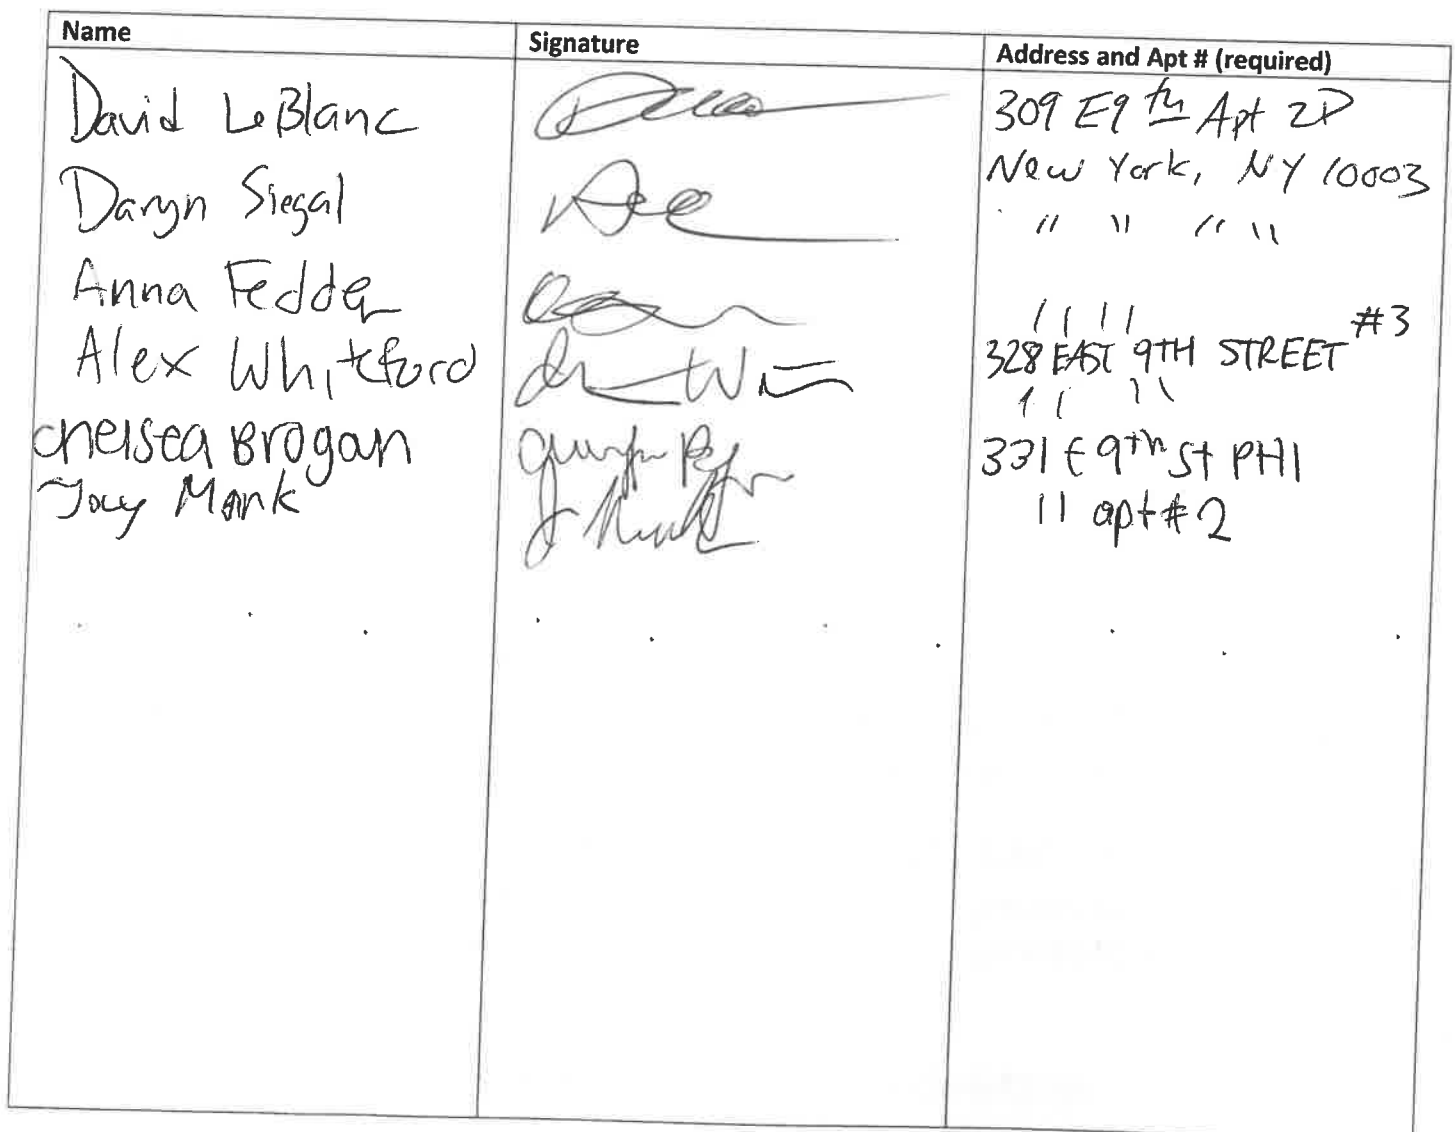 Name Signature Address and Apt # (required)
David LeBlanc 309 E9th Apt 2D
New York, NY 10003
Daryn Siegal " " " "
Anna Fedder " "
#3
Alex Whiteford 328 EAST 9TH STREET
" "
Chelsea Brogan 331 E 9th St PH1
Joey Monk " apt #2